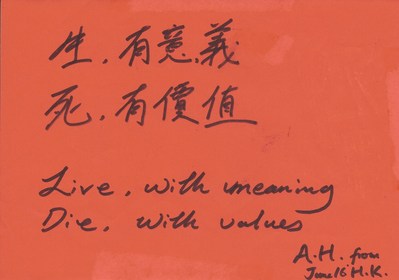 生，有意義
死，有價值
Live, with meaning
Die, with values
A.H. from
June16 H.K.